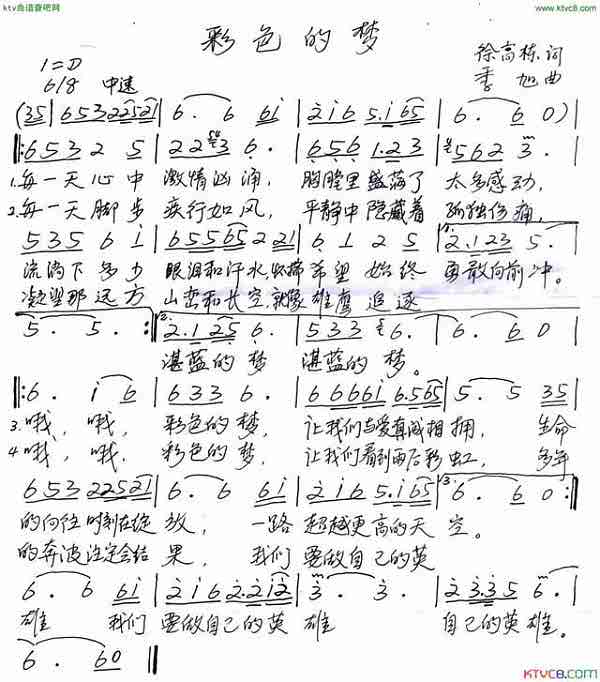 ktv曲谱音吧网
www.ktvc8.com
彩色的梦
1=D
徐高栋 词
6/8 中速
季旭 曲
(35 | 653322521 | 6. 6 61 | 216 5.165 | 6. 60)
‖:653 2 5 | 223 6. | 656 1.23 | 562 3.
1.每一天心中 激情汹涌, 胸膛里盛满了 太多感动,
2.每一天脚步 疾行如风, 平静中隐藏着 孤独伤痛,
535 6 1 | 65565 2 21 | 6 1 2 5 | 2.123 5.
流淌下多少 眼泪和汗水, 怀揣希望 始终 勇敢向前冲。
凝望那远方 山峦和长空, 就像雄鹰 追逐
5. 5. :‖ 2.125 6. | 533 6. | 6. 60
湛蓝的梦 湛蓝的梦。
‖:6. 1 6 | 633 6. | 66661 6.565 | 5. 5 35
3.哦, 哦, 彩色的梦, 让我们与爱真诚相拥, 生命
4.哦, 哦, 彩色的梦, 让我们看到雨后彩虹, 多年
653 22521 | 6. 6 61 | 216 5.165 | 3. 6. 60 :‖
的向往时刻在绽放, 一路 超越更高的天空。
的奔波注定会结果, 我们 要做自己的英
6. 6 61 | 216 2.212 | 3. 3. | 23.35 6.
雄 我们 要做自己的英 雄 自己的英雄。
6. 60 ‖
KTVC8.com